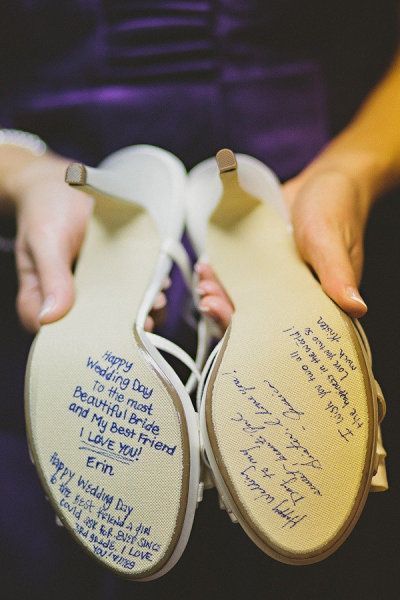 Happy
Wedding Day
To the most
Beautiful Bride
and My Best Friend
I LOVE YOU!
Erin
Happy Wedding Day
to the BEST FRIEND a girl
could ask for ever since
3rd grade. I LOVE
YOU!
Happy Wedding
Day to my
sweet
I love you!
I wish you two all
the happiness in the world!
Love you two so
much. Kristen